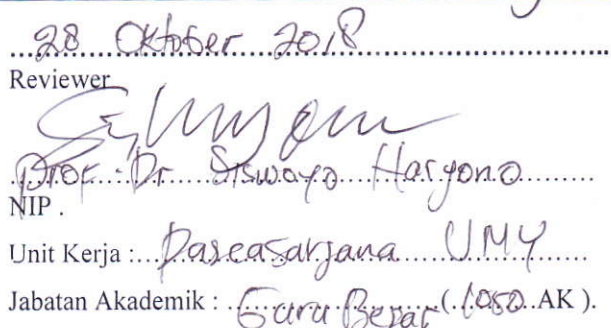 28 Oktober 2018
Reviewer
Prof. Dr. Siswoyo Haryono
NIP .
Unit Kerja : Pascasarjana UMY
Jabatan Akademik : Guru Besar (1050 AK ).